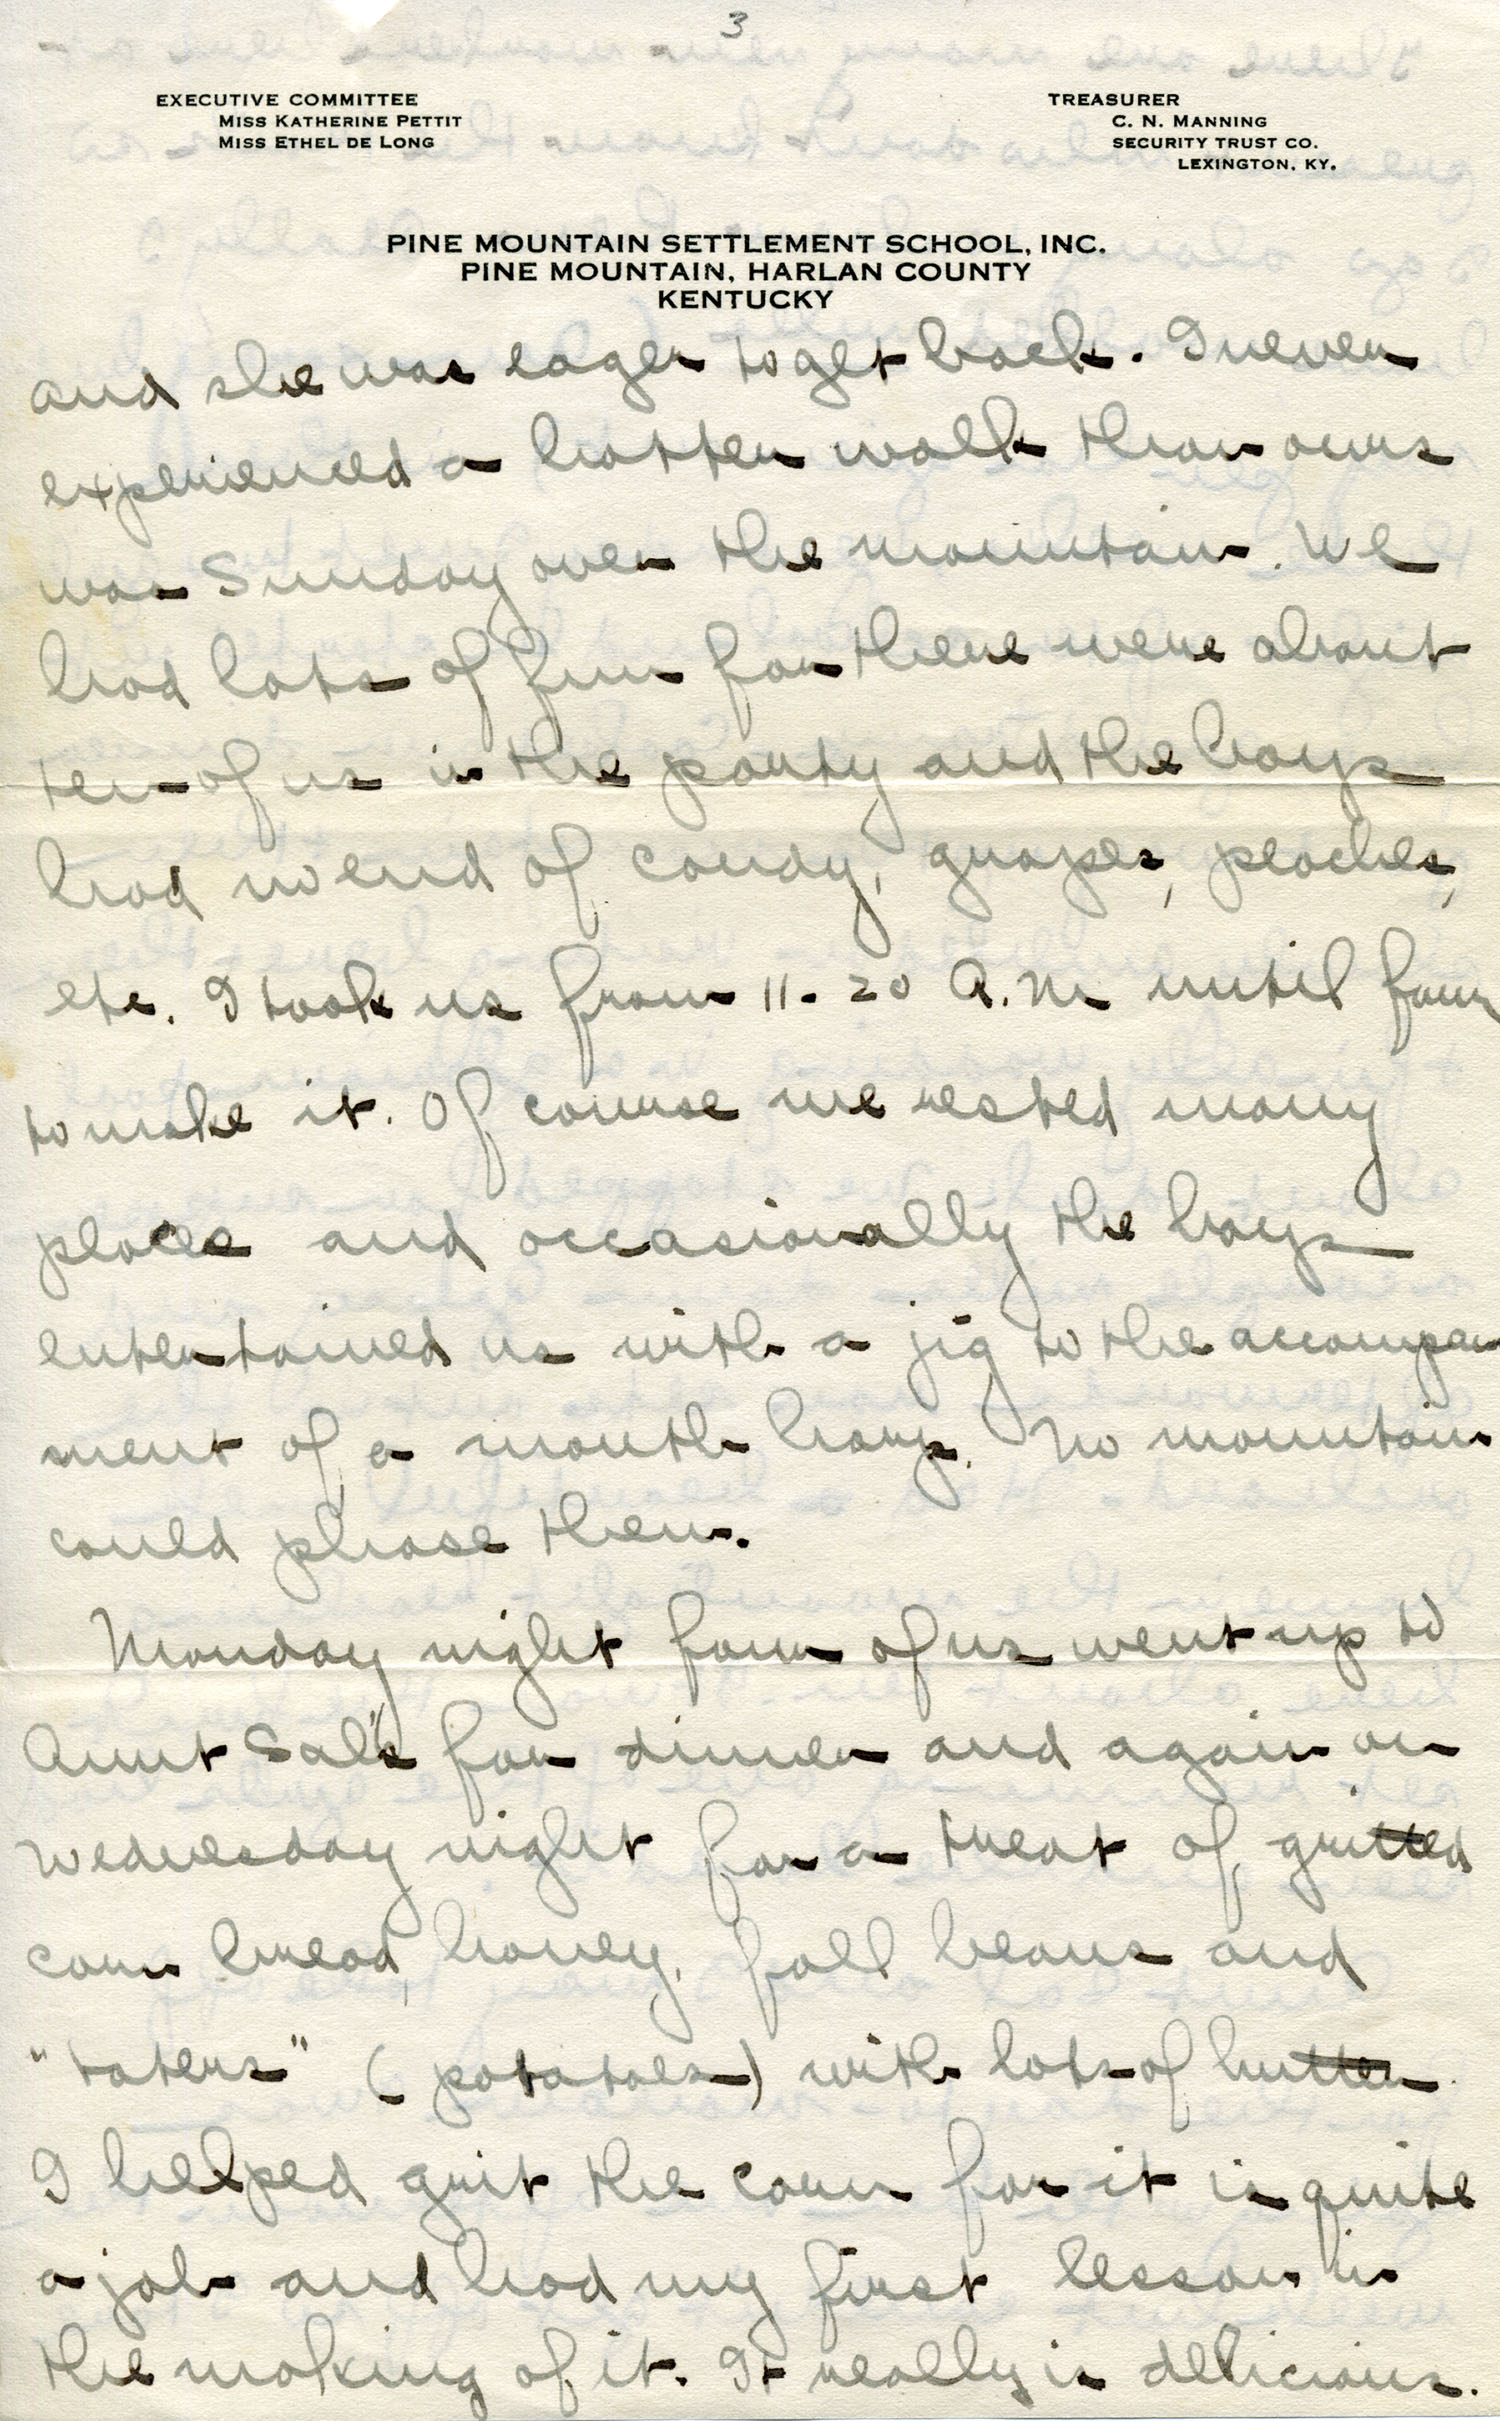 3
EXECUTIVE COMMITTEE
MISS KATHERINE PETTIT
MISS ETHEL DE LONG
TREASURER
C. N. MANNING
SECURITY TRUST CO.
LEXINGTON, KY.
PINE MOUNTAIN SETTLEMENT SCHOOL, INC.
PINE MOUNTAIN, HARLAN COUNTY
KENTUCKY
and she was eager to get back. I never
experienced a hotter walk than ours
was Sunday over the mountain. We
had lots of fun for there were about
ten of us in the party and the boys
had no end of candy, grapes, peaches,
etc. I took us from 11.20 A.M until four
to make it. Of course we rested many
places and occasionally the boys
entertained us with a jig to the accompan
ment of a mouth harp. No mountain
could phase them.
Monday night four of us went up to
Aunt Sal's for dinner and again on
Wednesday night for a treat of gritted
corn bread, honey, fall beans and
"taters" (potatoes) with lots of butter.
I helped grit the corn for it is quite
a job and had my first lesson in
the making of it. It really is delicious.